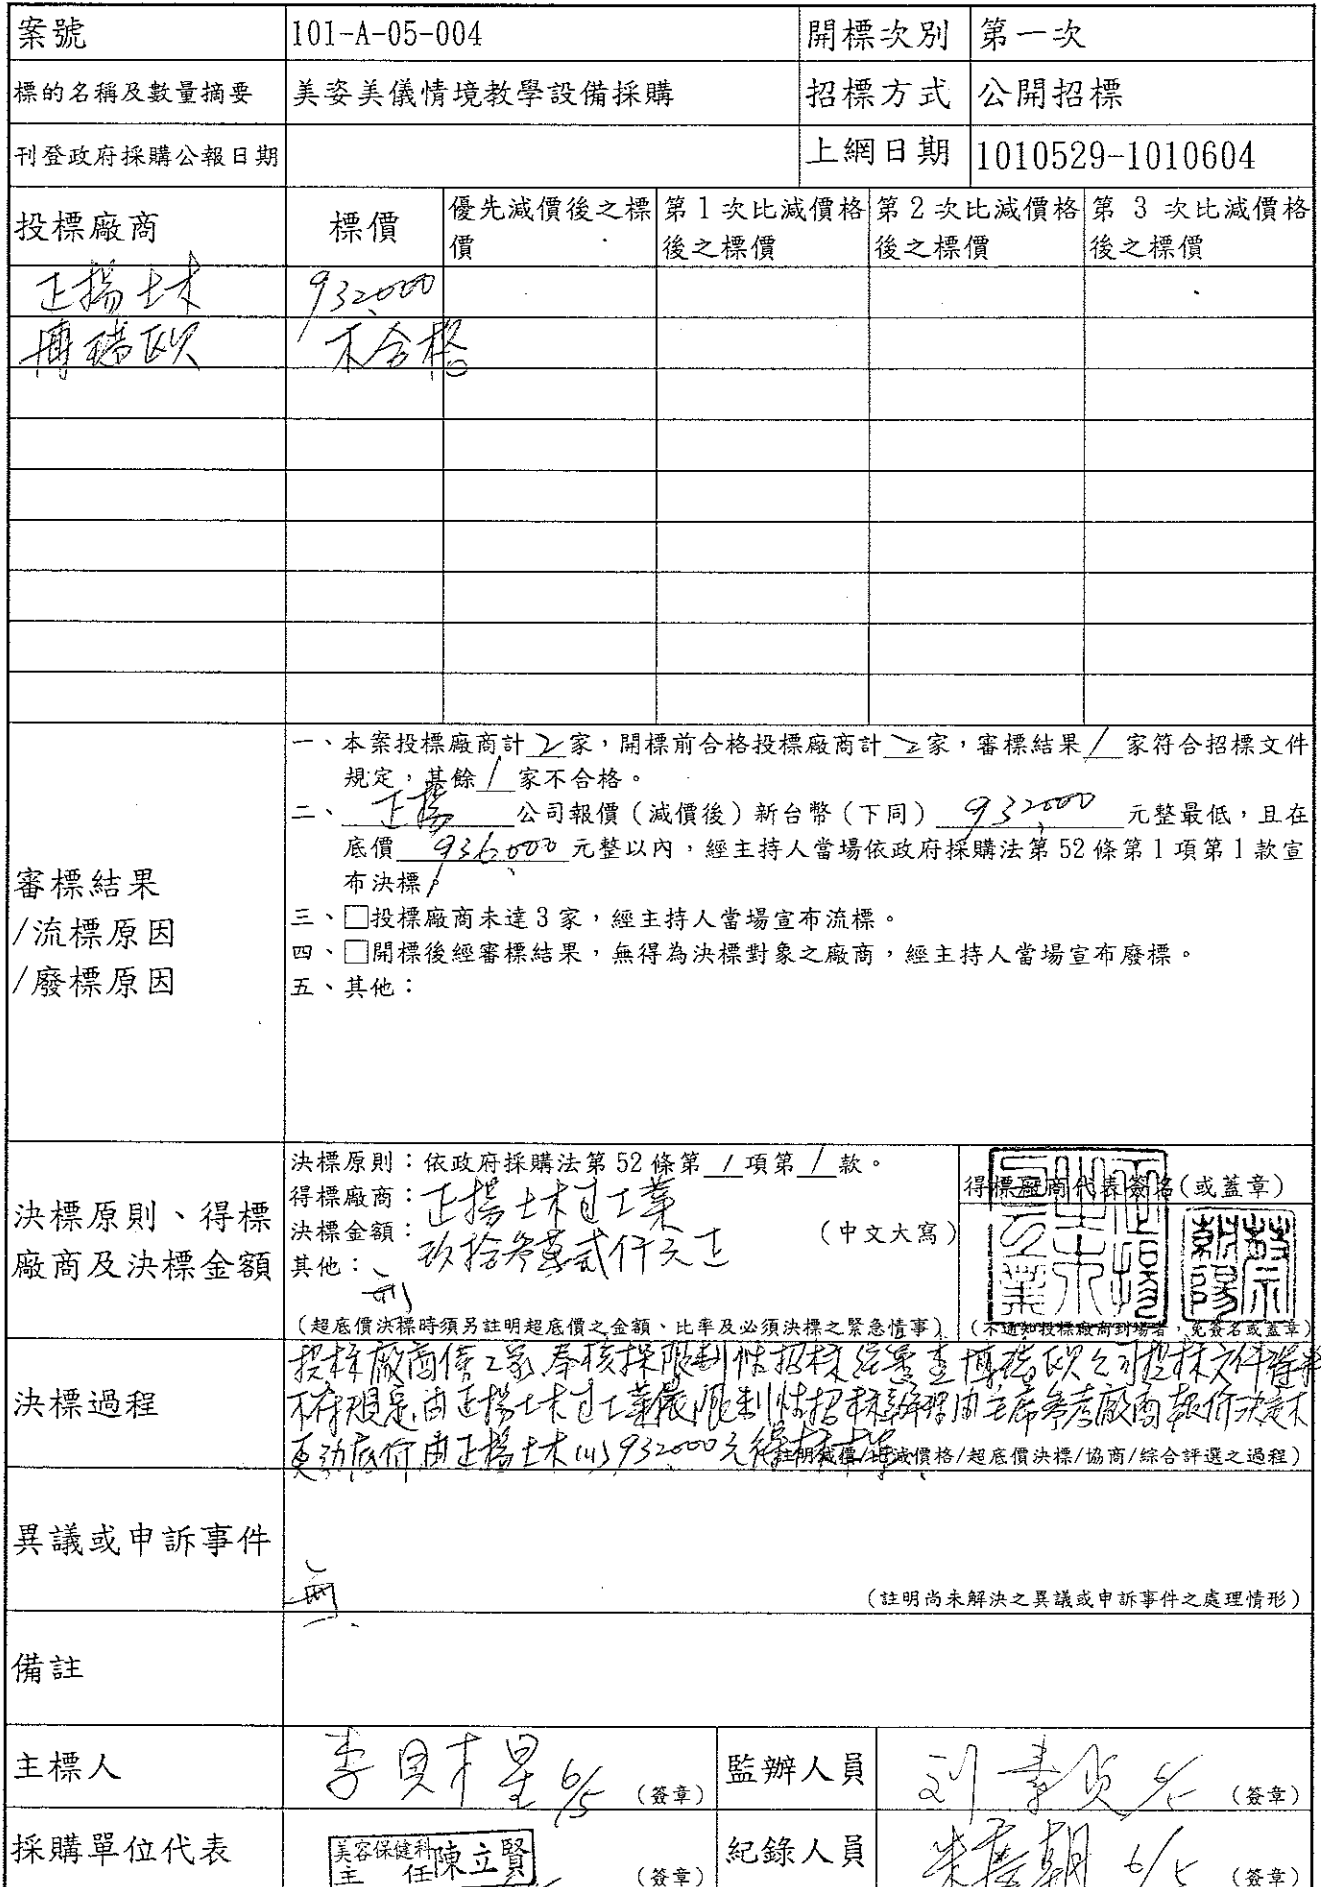 案號 101-A-05-004 開標次別 第一次
標的名稱及數量摘要 美姿美儀情境教學設備採購 招標方式 公開招標
刊登政府採購公報日期 上網日期 1010529-1010604
投標廠商 標價 優先減價後之標價 第1次比減價格後之標價 第2次比減價格後之標價 第3次比減價格後之標價
正揚土木 932,000
博瑞欧 不合格
審標結果
/流標原因
/廢標原因
一、本案投標廠商計2家,開標前合格投標廠商計2家,審標結果1家符合招標文件
規定,其餘1家不合格。
二、正揚公司報價(減價後)新台幣(下同)932,000元整最低,且在
底價936,000元整以內,經主持人當場依政府採購法第52條第1項第1款宣
布決標。
三、□投標廠商未達3家,經主持人當場宣布流標。
四、□開標後經審標結果,無得為決標對象之廠商,經主持人當場宣布廢標。
五、其他:
決標原則、得標
廠商及決標金額
決標原則:依政府採購法第52條第1項第1款。
得標廠商:正揚土木包工業
決標金額:玖拾參萬貳仟元正 (中文大寫)
其他:無
(超底價決標時須另註明超底價之金額、比率及必須決標之緊急情事)
得標廠商代表簽名(或蓋章)
(不通知投標廠商到場者,免簽名或蓋章)
決標過程
投標廠商僅2家,奉核採限制性招標,經審查博瑞欧公司投標文件
不符規定,由正揚土木包工業依限制性招標辦理,由主席參考廠商報价決定不
更动底价,由正揚土木以932,000元得標
(註明減價/比減價格/超底價決標/協商/綜合評選之過程)
異議或申訴事件
無
(註明尚未解決之異議或申訴事件之處理情形)
備註
主標人 6/5 (簽章) 監辦人員 6/5 (簽章)
採購單位代表 美容保健科主任陳立賢 (簽章) 紀錄人員 6/5 (簽章)